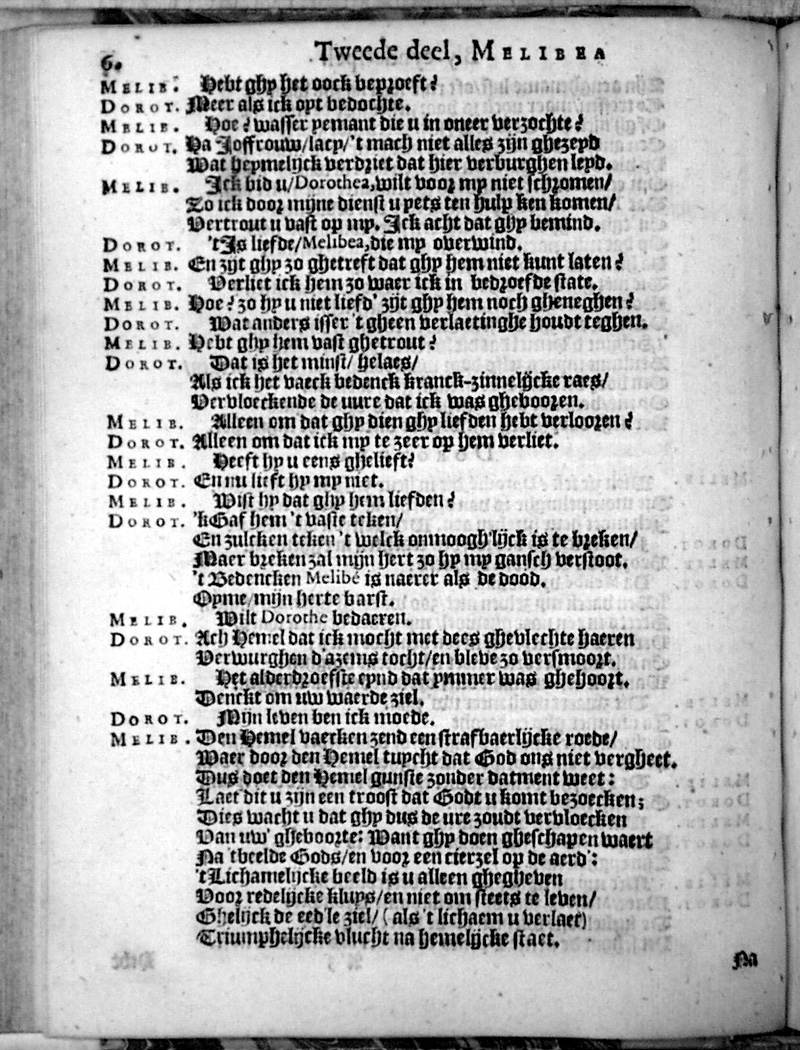 6.
Tweede deel, MELIBEA
MELIB. Hebt ghy het oock beproeft?
DOROT. Meer als ick opt bedochte.
MELIB. Hoe? wasser yemant die u in oneer verzochte?
DOROT. Ha Joffrouw/lacy/'t mach niet alles zijn ghezeyd
Wat heymelijck verdriet dat hier verburghen leyd.
MELIB. Ick bid u/Dorothea, wilt voor my niet schromen/
Zo ick door mijne dienst u yets ten hulp ken komen/
Vertrout u vast op my. Ick acht dat ghy bemind.
DOROT. 'tIs liefde/Melibea, die my overwind.
MELIB. En zijt ghy zo ghetreft dat ghy hem niet kunt laten?
DOROT. Verliet ick hem zo waer ick in bedroefde state.
MELIB. Hoe? zo hy u niet liefd' zijt ghy hem noch gheneghen?
DOROT. Wat anders isser 't gheen verlaetinghe houdt teghen.
MELIB. Hebt ghy hem vast ghetrout?
DOROT. Dat is het minst/ helaes/
Als ick het vaeck bedenck kranck-zinnelijcke raes/
Vervloeckende de uure dat ick was gheboozen.
MELIB. Alleen om dat ghy dien ghy liefden hebt verloozen?
DOROT. Alleen om dat ick my te zeer op hem verliet.
MELIB. Heeft hy u eens ghelieft?
DOROT. En nu lieft hy my niet.
MELIB. Wist hy dat ghy hem liefden?
DOROT. 'kGaf hem 't vaste teken/
En zulcken teken 't welck onmoogh'lijck is te breken/
Maer breken zal mijn hert zo hy my gansch verstoot.
't Bedencken Melibé is naerer als de dood.
Opme/mijn herte barst.
MELIB. Wilt Dorothe bedaeren.
DOROT. Ach Hemel dat ick mocht met dees ghevlechte haeren
Verwurghen d'azems tocht/en bleve zo versmoort.
MELIB. Het alderdroefste eynd dat ymmer was ghehoort.
Denckt om uw waerde ziel.
DOROT. Mijn leven ben ick moede.
MELIB. Den Hemel vaecken zend een strafbaerlijcke roede/
Waer door den Hemel tuycht dat God ons niet vergheet.
Dus doet den Hemel gunste zonder datment weet:
Laet dit u zijn een troost dat Godt u komt bezoecken;
Dies wacht u dat ghy dus de ure zoudt vervloecken
Van uw' gheboorte: Want ghy doen gheschapen waert
Na 'tbeelde Gods/en voor een cierzel op de aerd':
't Lichamelijcke beeld is u alleen ghegheven
Voor redelijcke kluys/en niet om steets te leven/
Ghelijck de eed'le ziel/ (als 't lichaem u verlaet)
Triumphelijcke vlucht na hemelijcke staet.
Na